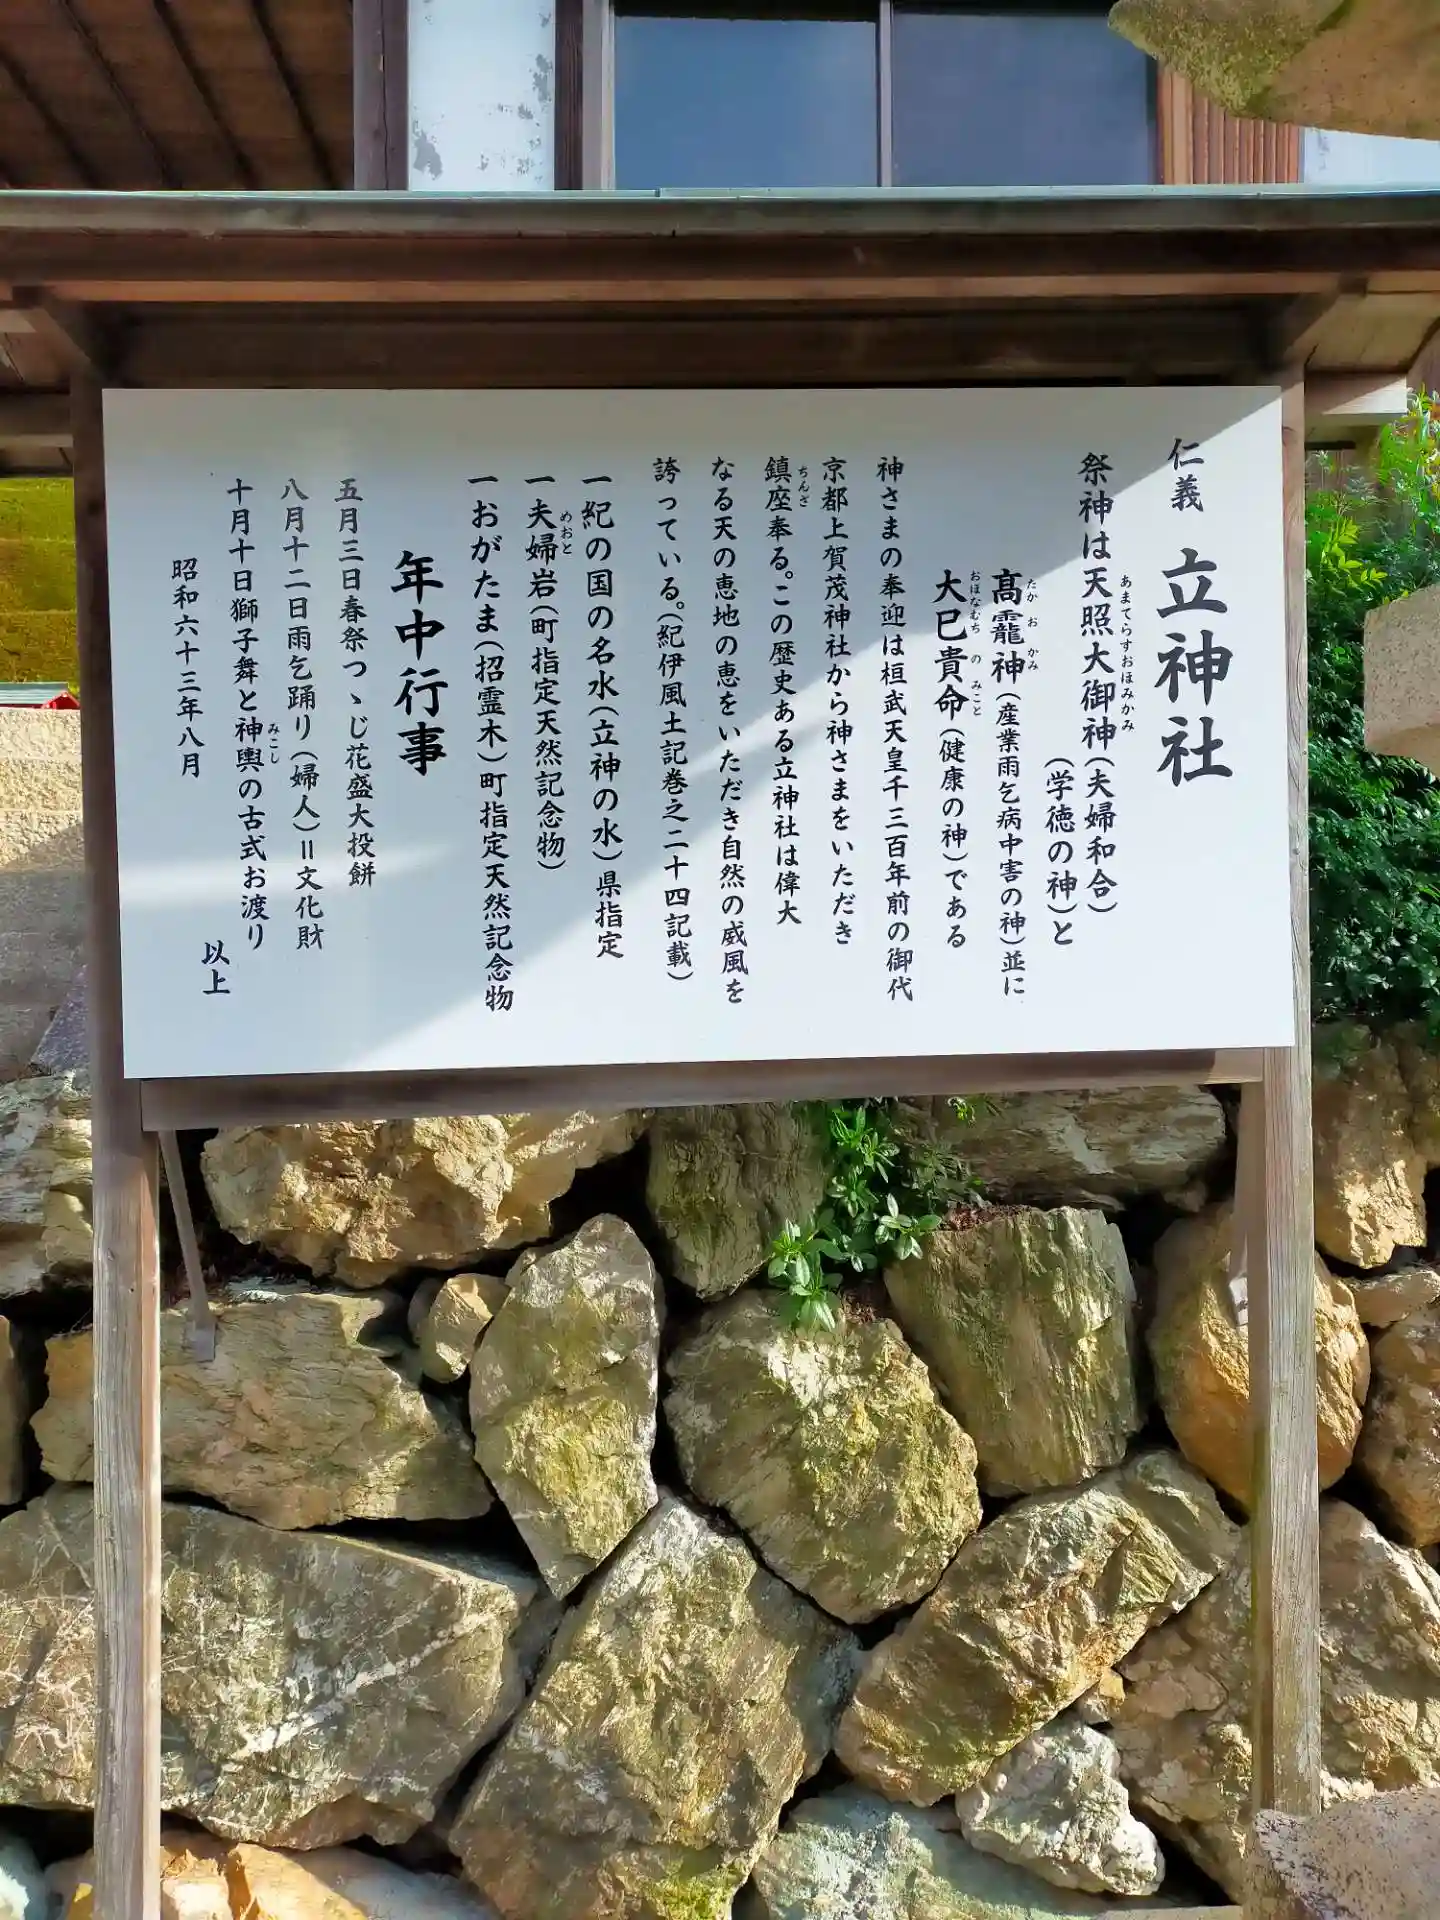 仁義 立神社
祭神は天照大御神(夫婦和合)
あまてらすおほみかみ
(学徳の神)と
髙龗神(産業雨乞病中害の神)並に
たか お かみ
大巳貴命(健康の神)である
おほなむち の みこと
神さまの奉迎は桓武天皇千三百年前の御代
京都上賀茂神社から神さまをいただき
鎮座奉る。この歴史ある立神社は偉大
ちんざ
なる天の恵地の恵をいただき自然の威風を
誇っている。(紀伊風土記巻之二十四記載)
一紀の国の名水(立神の水)県指定
一夫婦岩(町指定天然記念物)
めおと
一おがたま(招霊木)町指定天然記念物
年中行事
五月三日春祭つゝじ花盛大投餅
八月十二日雨乞踊り(婦人)=文化財
十月十日獅子舞と神輿の古式お渡り
みこし
以上
昭和六十三年八月